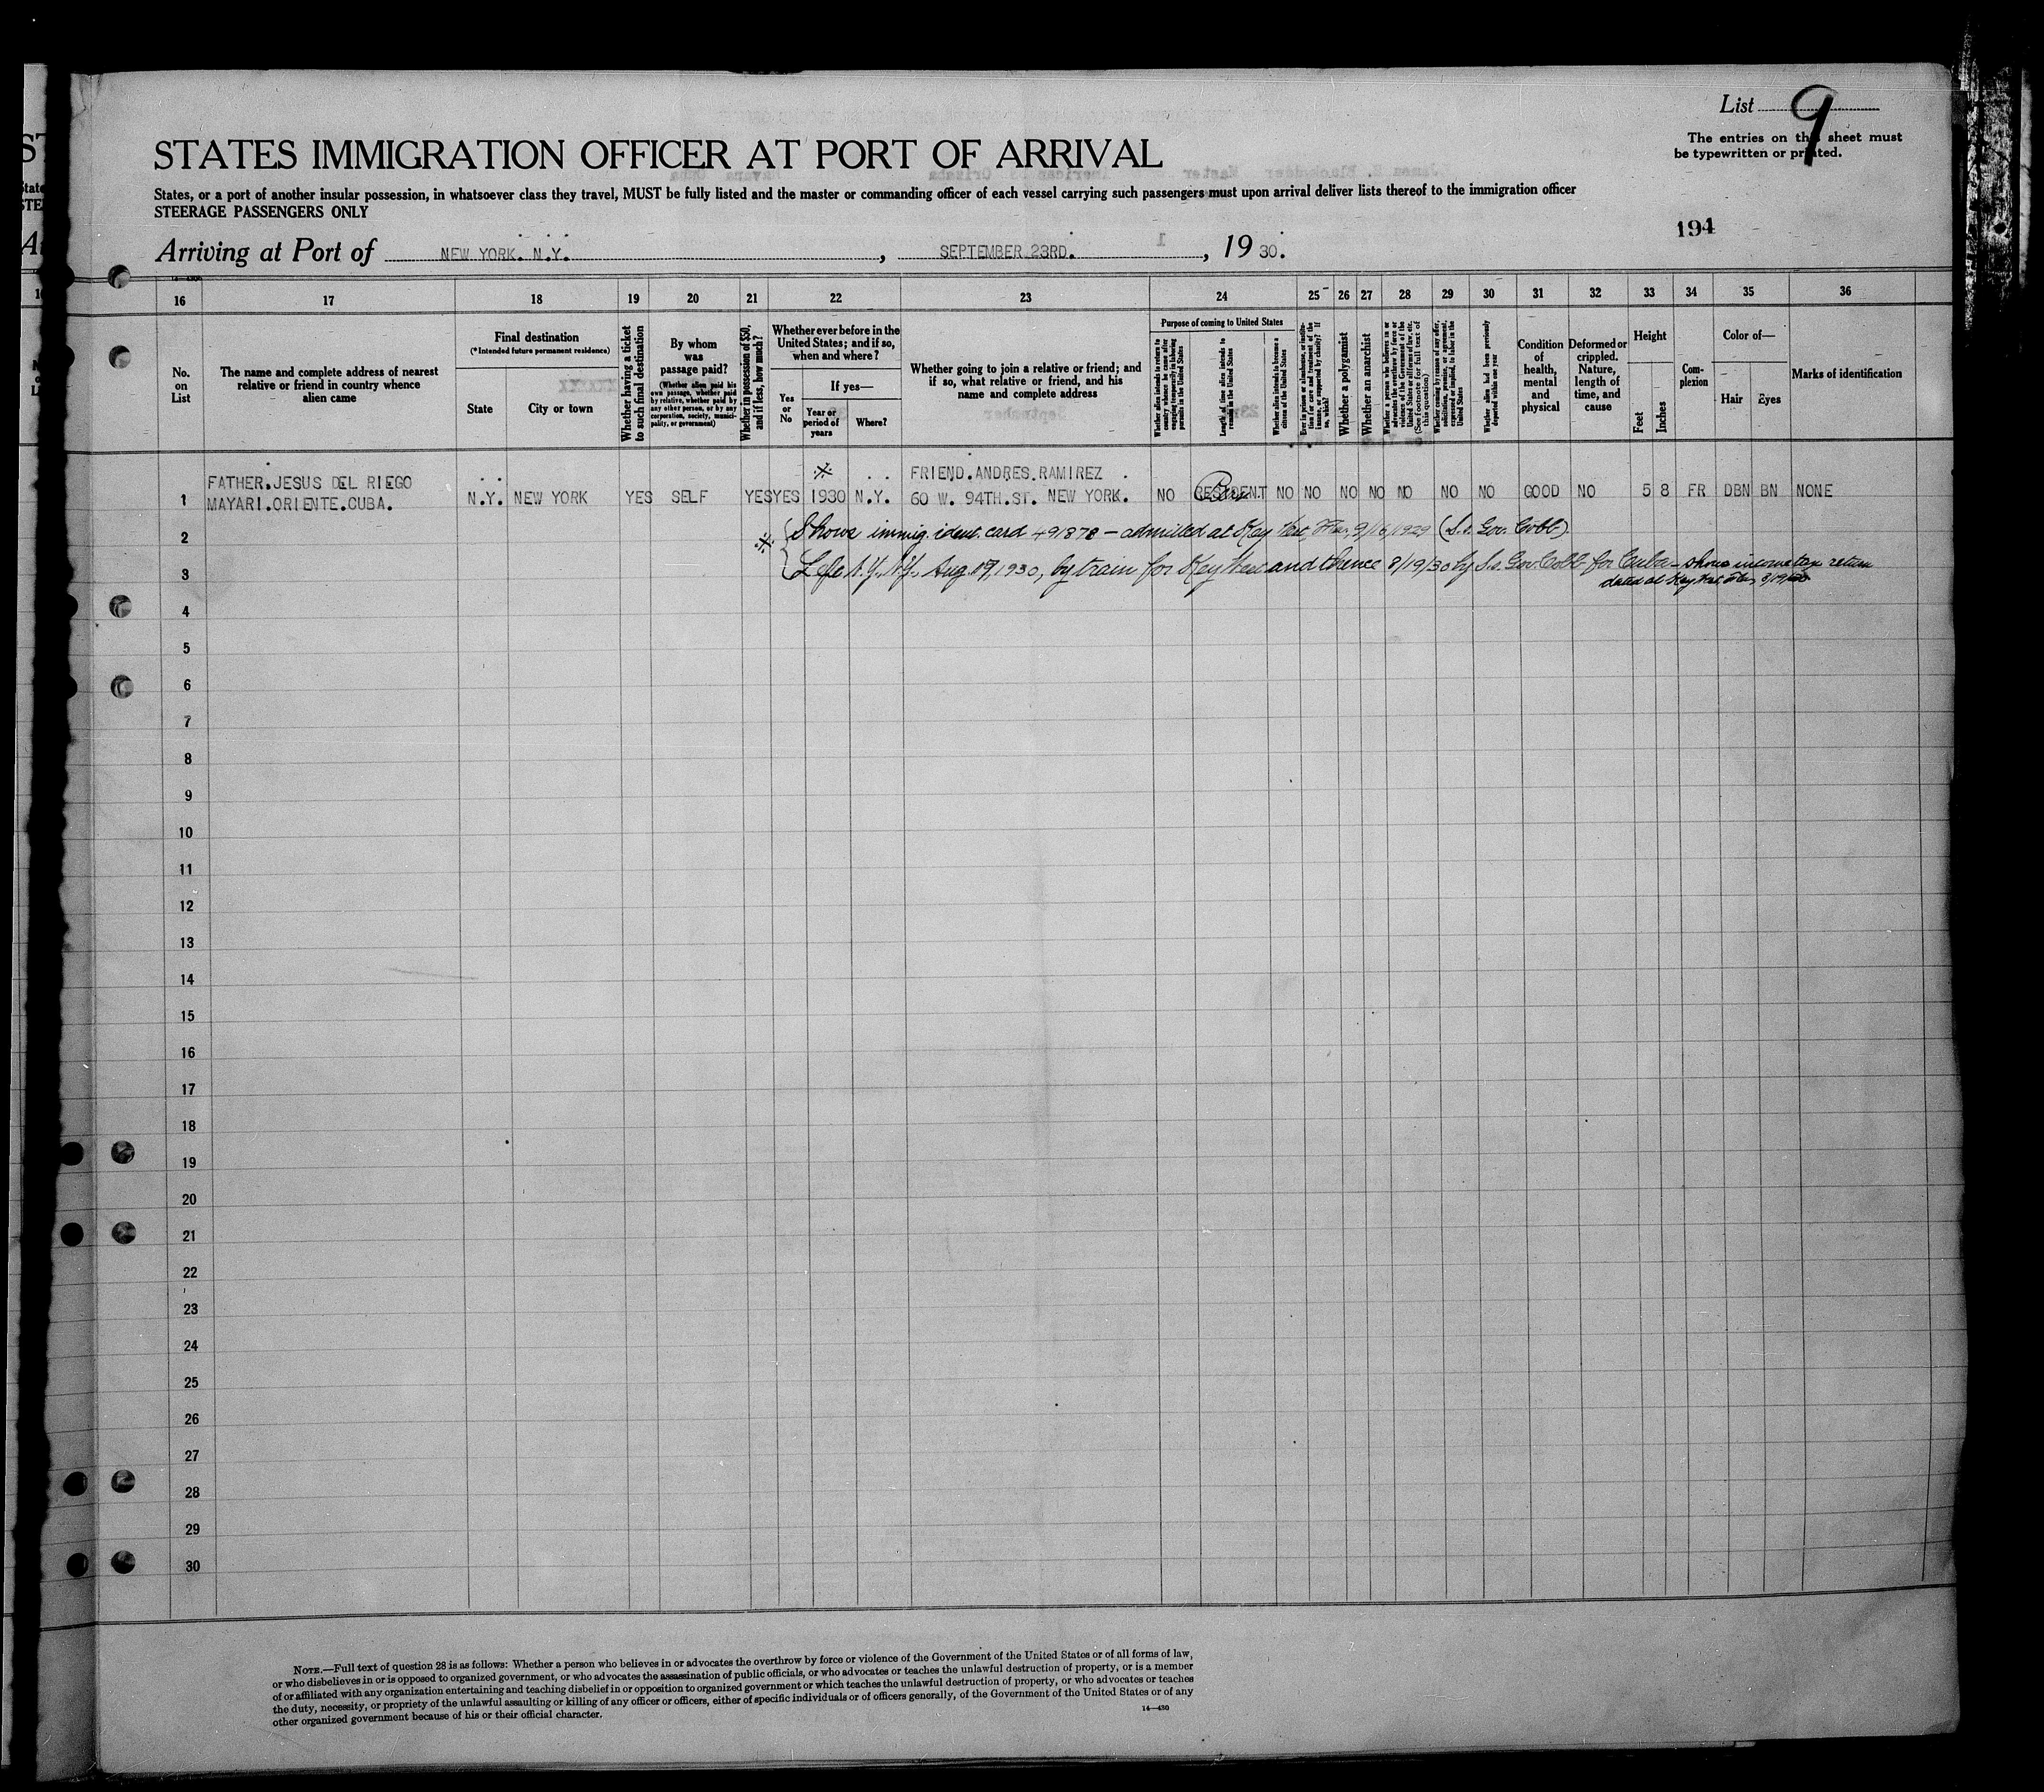 List 9
The entries on this sheet must
be typewritten or printed.
STATES IMMIGRATION OFFICER AT PORT OF ARRIVAL
States, or a port of another insular possession, in whatsoever class they travel, MUST be fully listed and the master or commanding officer of each vessel carrying such passengers must upon arrival deliver lists thereof to the immigration officer
STEERAGE PASSENGERS ONLY
194
Arriving at Port of NEW YORK. N.Y. , SEPTEMBER 23RD. , 19 30.
16 17 18 19 20 21 22 23 24 25 26 27 28 29 30 31 32 33 34 35 36
No.
on
List
The name and complete address of nearest
relative or friend in country whence
alien came
Final destination
(*Intended future permanent residence)
State
City or town
Whether having a ticket
to such final destination
By whom
was
passage paid?
(Whether alien paid his
own passage, whether paid
by relative, whether paid by
any other person, or by any
corporation, society, munici-
pality, or government)
Whether in possession of $50,
and if less, how much?
Whether ever before in the
United States; and if so,
when and where?
Yes
or
No
If yes—
Year or
period of
years
Where?
Whether going to join a relative or friend; and
if so, what relative or friend, and his
name and complete address
Purpose of coming to United States
Whether alien intends to return to
country whence he came after
engaging temporarily in laboring
pursuits in the United States
Length of time alien intends to
remain in the United States
Whether alien intends to become a
citizen of the United States
Ever in prison or almshouse, or institu-
tion for care and treatment of the
insane, or supported by charity? If
so, which?
Whether a polygamist
Whether an anarchist
Whether a person who believes in or
advocates the overthrow by force or
violence of the Government of the
United States or all forms of law, etc.
(See footnote for full text of
this question)
Whether coming by reason of any offer,
solicitation, promise, or agreement,
expressed or implied, to labor in the
United States
Whether alien had been previously
deported within one year
Condition
of
health,
mental
and
physical
Deformed or
crippled.
Nature,
length of
time, and
cause
Height
Feet
Inches
Com-
plexion
Color of—
Hair
Eyes
Marks of identification
FATHER.JESUS DEL RIEGO ※ FRIEND.ANDRES.RAMIREZ
1 MAYARI.ORIENTE.CUBA. N.Y. NEW YORK YES SELF YES YES 1930 N.Y. 60 W. 94TH.ST. NEW YORK. NO RESIDENT NO NO NO NO NO NO NO GOOD NO 5 8 FR DBN BN NONE
2 ※ Shows immig. ident. card 491878 – admitted at Key West, Fla., 9/16/1929 (S.s. Gov. Cobb)
3 Left N.Y., N.Y., Aug. 17, 1930, by train for Key West and thence 8/19/30 by S.s. Gov. Cobb for Cuba – shows income tax return
dated at Key West Fla 8/19/30
4
5
6
7
8
9
10
11
12
13
14
15
16
17
18
19
20
21
22
23
24
25
26
27
28
29
30
NOTE.—Full text of question 28 is as follows: Whether a person who believes in or advocates the overthrow by force or violence of the Government of the United States or of all forms of law,
or who disbelieves in or is opposed to organized government, or who advocates the assassination of public officials, or who advocates or teaches the unlawful destruction of property, or is a member
of or affiliated with any organization entertaining and teaching disbelief in or opposition to organized government or which teaches the unlawful destruction of property, or who advocates or teaches
the duty, necessity, or propriety of the unlawful assaulting or killing of any officer or officers, either of specific individuals or of officers generally, of the Government of the United States or of any
other organized government because of his or their official character.
14—430